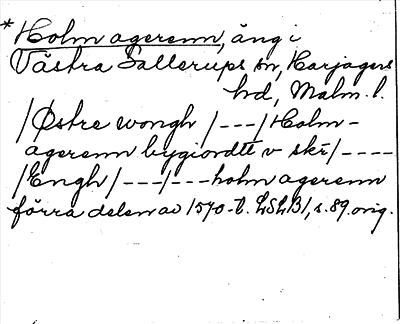 *Holm agerenn, äng i
Västra Sallerups sn, Harjagers
hd, Malm. l.
/Østre wongh /---/ Holm-
agerenn bygiordtt v skr/----
/Engh/---/---holm agerenn
förra delen av 1570-t. LSLB1, s. 89. orig.